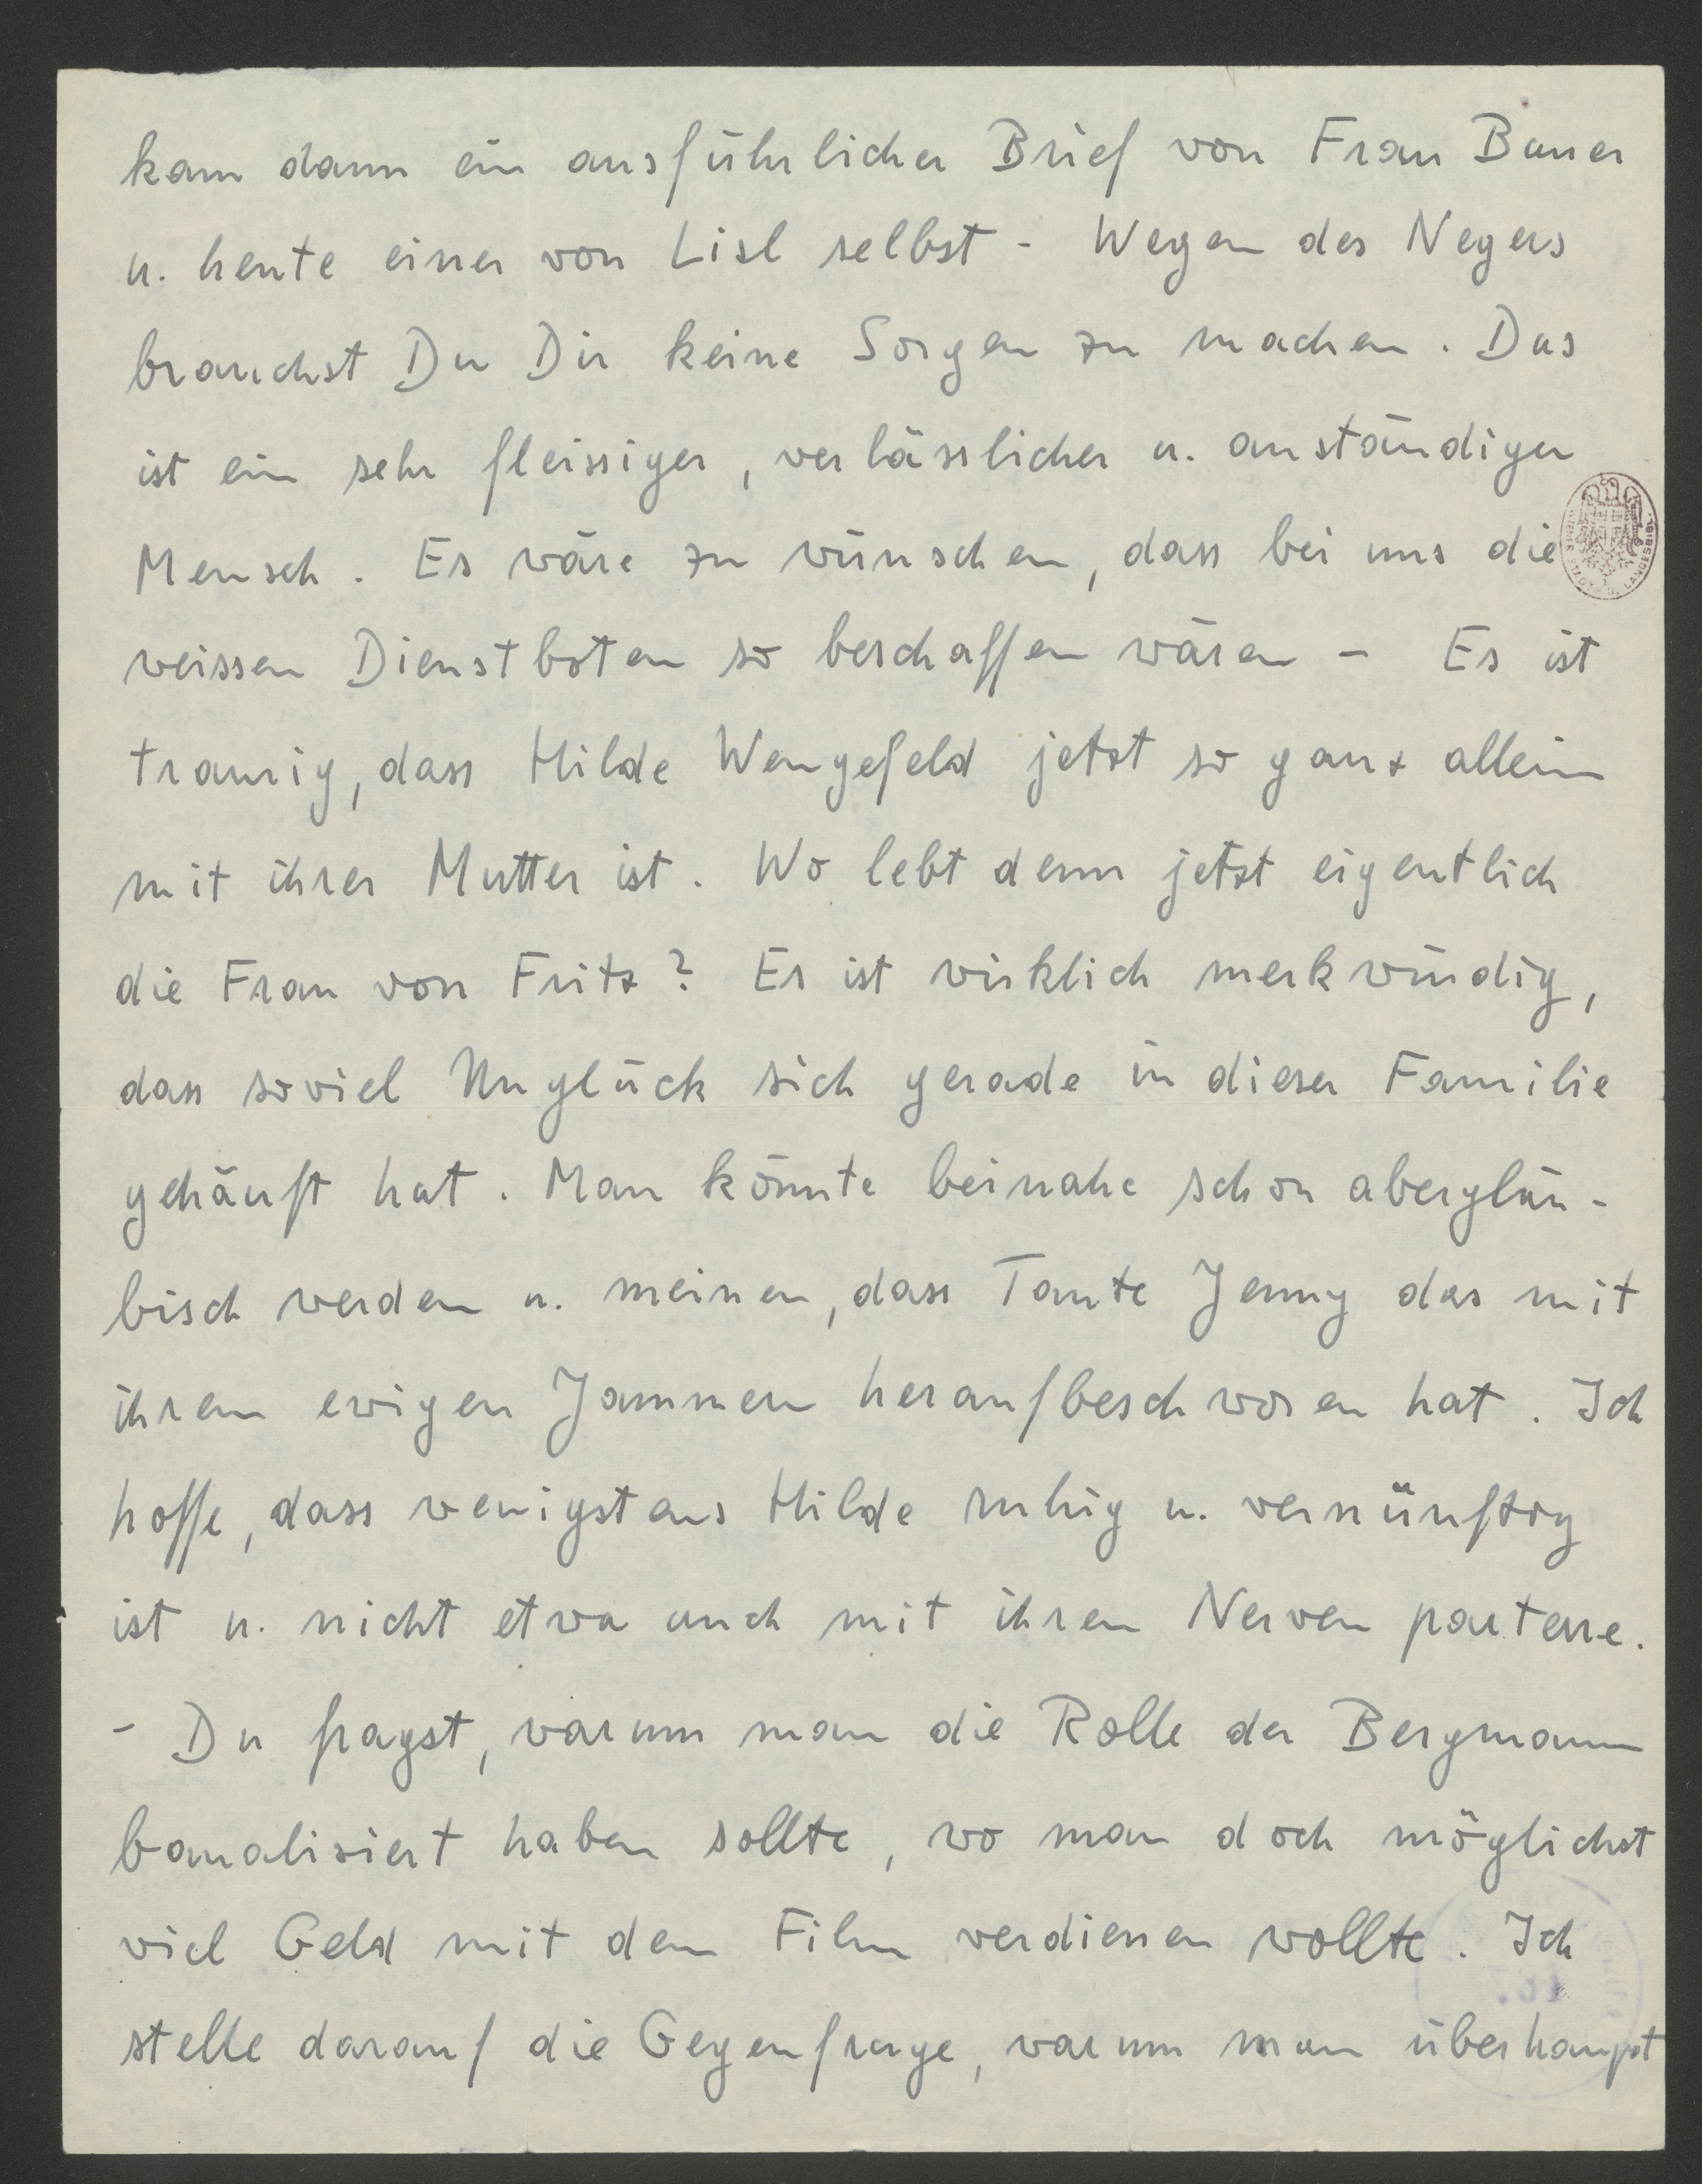 kam dann ein ausführlicher Brief von Frau Bauer
u. heute einer von Lisl selbst - Wegen des Negers
brauchst Du Dir keine Sorgen zu machen. Das
ist ein sehr fleissiger, verlässlicher u. anständiger
Mensch. Es wäre zu wünschen, dass bei uns die
weissen Dienstboten so beschaffen wären - Es ist
traurig, dass Hilde Wengefeld jetzt so ganz allein
mit ihrer Mutter ist. Wo lebt denn jetzt eigentlich
die Frau von Fritz? Es ist wirklich merkwürdig,
dass soviel Unglück sich gerade in dieser Familie
gehäuft hat. Man könnte beinahe schon abergläu-
bisch werden u. meinen, dass Tante Jenny das mit
ihrem ewigen Jammern heraufbeschworen hat. Ich
hoffe, dass wenigstens Hilde ruhig u. vernünftig
ist u. nicht etwa auch mit ihren Nerven parterre.
- Du fragst, warum man die Rolle der Bergmann
banalisiert haben sollte, wo man doch möglichst
viel Geld mit dem Film verdienen wollte. Ich
stelle darauf die Gegenfrage, warum man überhaupt